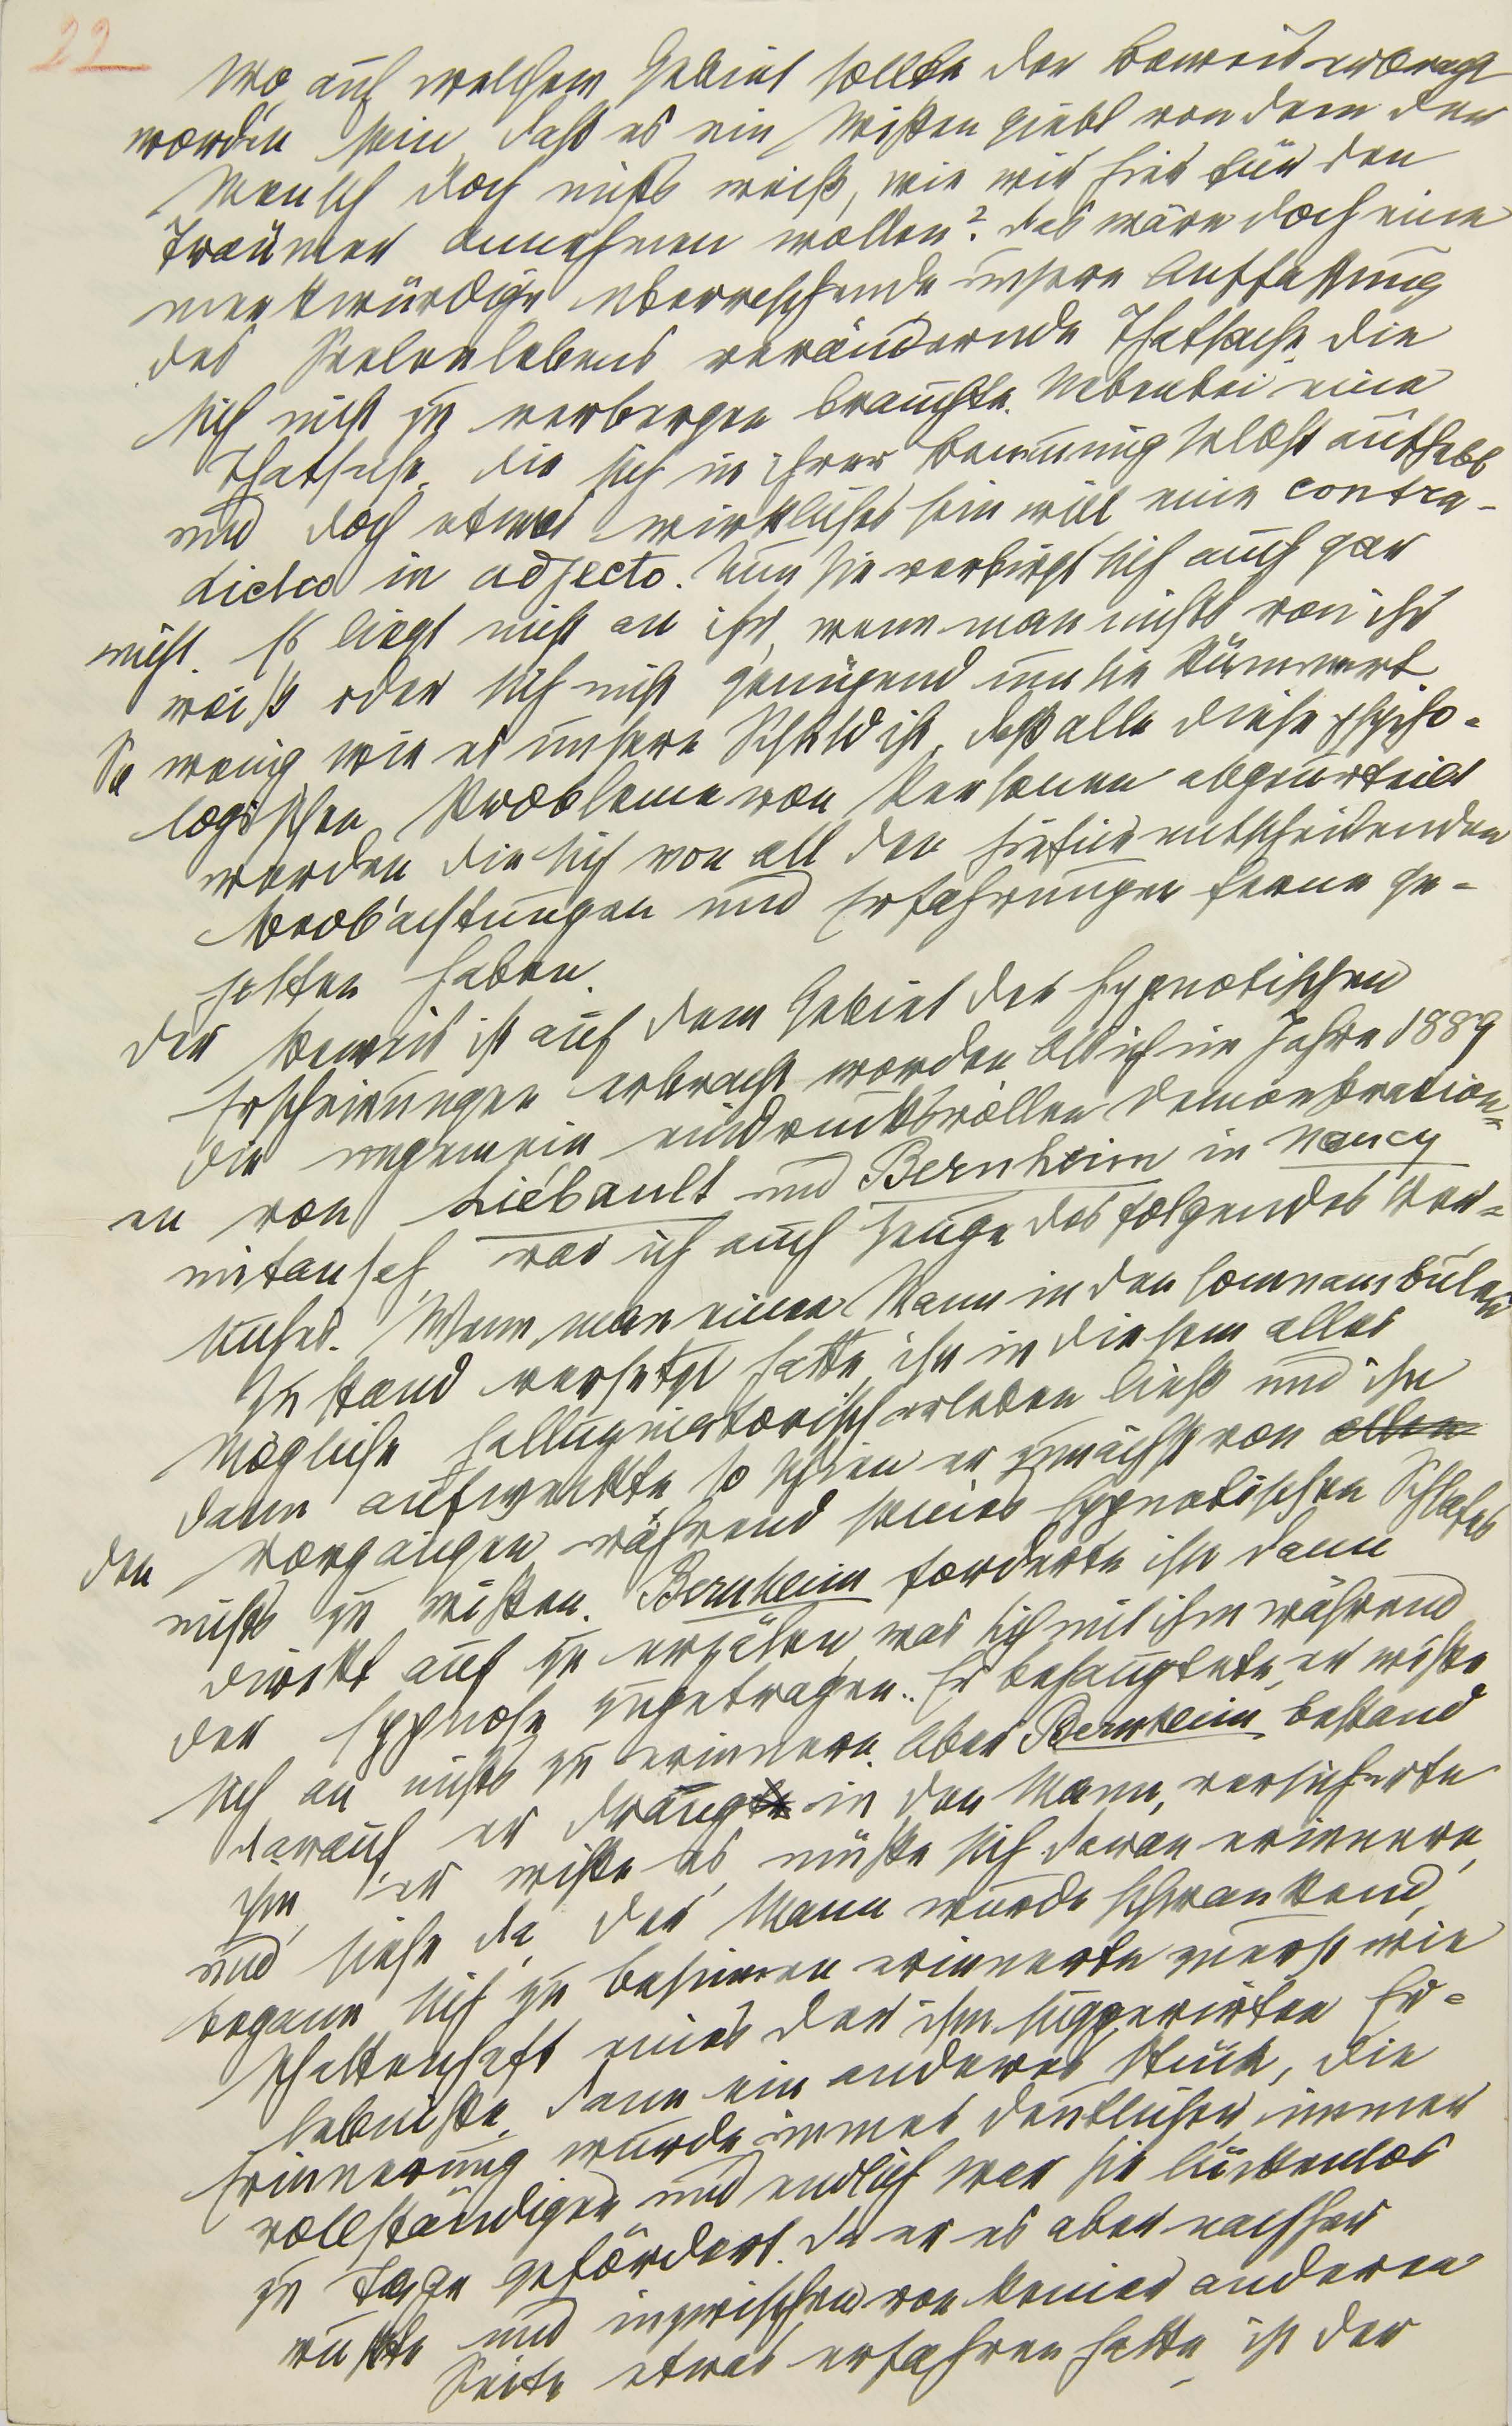 22
Wo, auf welchem Gebiet sollte der Beweis erbracht
worden sein, daß es ein Wißen giebt von dem der
Mensch doch nichts weiß, wie wir hier für den
Träumer annehmen wollen? das wäre doch eine
merkwürdige überraschende unsere Auffassung
des Seelenlebens verändernde Thatsache, die
sich nicht zu verbergen brauchte. Nebenbei eine
Thatsache, die sich in ihrer Benennung selbst aufhebt
und doch etwas wirkliches sein will eine contra-
dictio in adjecto. Nun sie verbirgt sich auch gar
nicht. Es liegt nicht an ihr, wenn man nichts von ihr
weiß oder sich nicht genügend um sie kümmert
So wenig wie es unsere Schuld ist, daß alle diese psycho-
logischen Probleme von Personen abgeurteilt
werden die sich von all den hiefür entscheidenden
Beobachtungen und Erfahrungen ferne ge-
halten haben.
Der Beweis ist auf dem Gebiet der hypnotischen
Erscheinungen erbracht worden Als ich im Jahre 1889
die ungemein eindrucksvollen Demonstration-
en von Liébault und Bernheim in Nancy
mitansah, war ich auch Zeuge des folgenden Ver-
suches. Wenn man einen Mann in den somnambulen
Zustand versetzt hatte, ihn in diesem alles
Mögliche halluzinatorisch erleben ließ und ihn
dann aufweckte, so schien er zunächst von allen
den Vorgängen während seines hypnotischen Schlafes
nichts zu wißen. Bernheim forderte ihn dann
direkt auf zu erzählen, was sich mit ihm während
der Hypnose zugetragen. Er behauptete, er wiße
sich an nichts zu erinnern. Aber Bernheim bestand
darauf, er drang in den Mann, versicherte
ihm, er wiße es, müßte sich daran erinnern,
und siehe da, der Mann wurde schwankend,
begann sich zu besinnen erinnerte zuerst wie
schattenhaft eines der ihm suggerirten Er-
lebniße, dann ein anderes Stück, die
Erinnerung wurde immer deutlicher, immer
vollständiger und endlich war sie lückenlos
zu Tage gefördert. Da er es aber nachher
wußte und inzwischen von keiner anderen
Seite etwas erfahren hatte, ist der